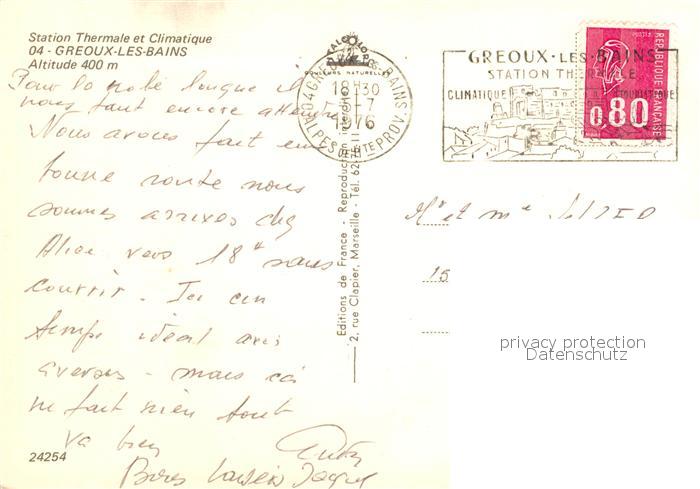 Station Thermale et Climatique
04 - GREOUX-LES-BAINS
Altitude 400 m
Pour la robe longue il
nous faut encore attendre
Nous avons fait une
bonne route nous
sommes arrivés chez
Alice vers 18h sans
courrir. Ici un
temps idéal avec
averses - mais ça
ne fait rien tout
va bien
Bons baisers
24254
Editions de France - Reproduction interdite
2, rue Clapier, Marseille - Tél. 62
18H30
-7
1976
04 GREOUX-LES-BAINS
ALPES DE HTE PROV.
GREOUX-LES-BAINS
STATION THERMALE
CLIMATIQUE TOURISTIQUE
0,80
REPUBLIQUE FRANÇAISE
Mr et Me
15
privacy protection
Datenschutz